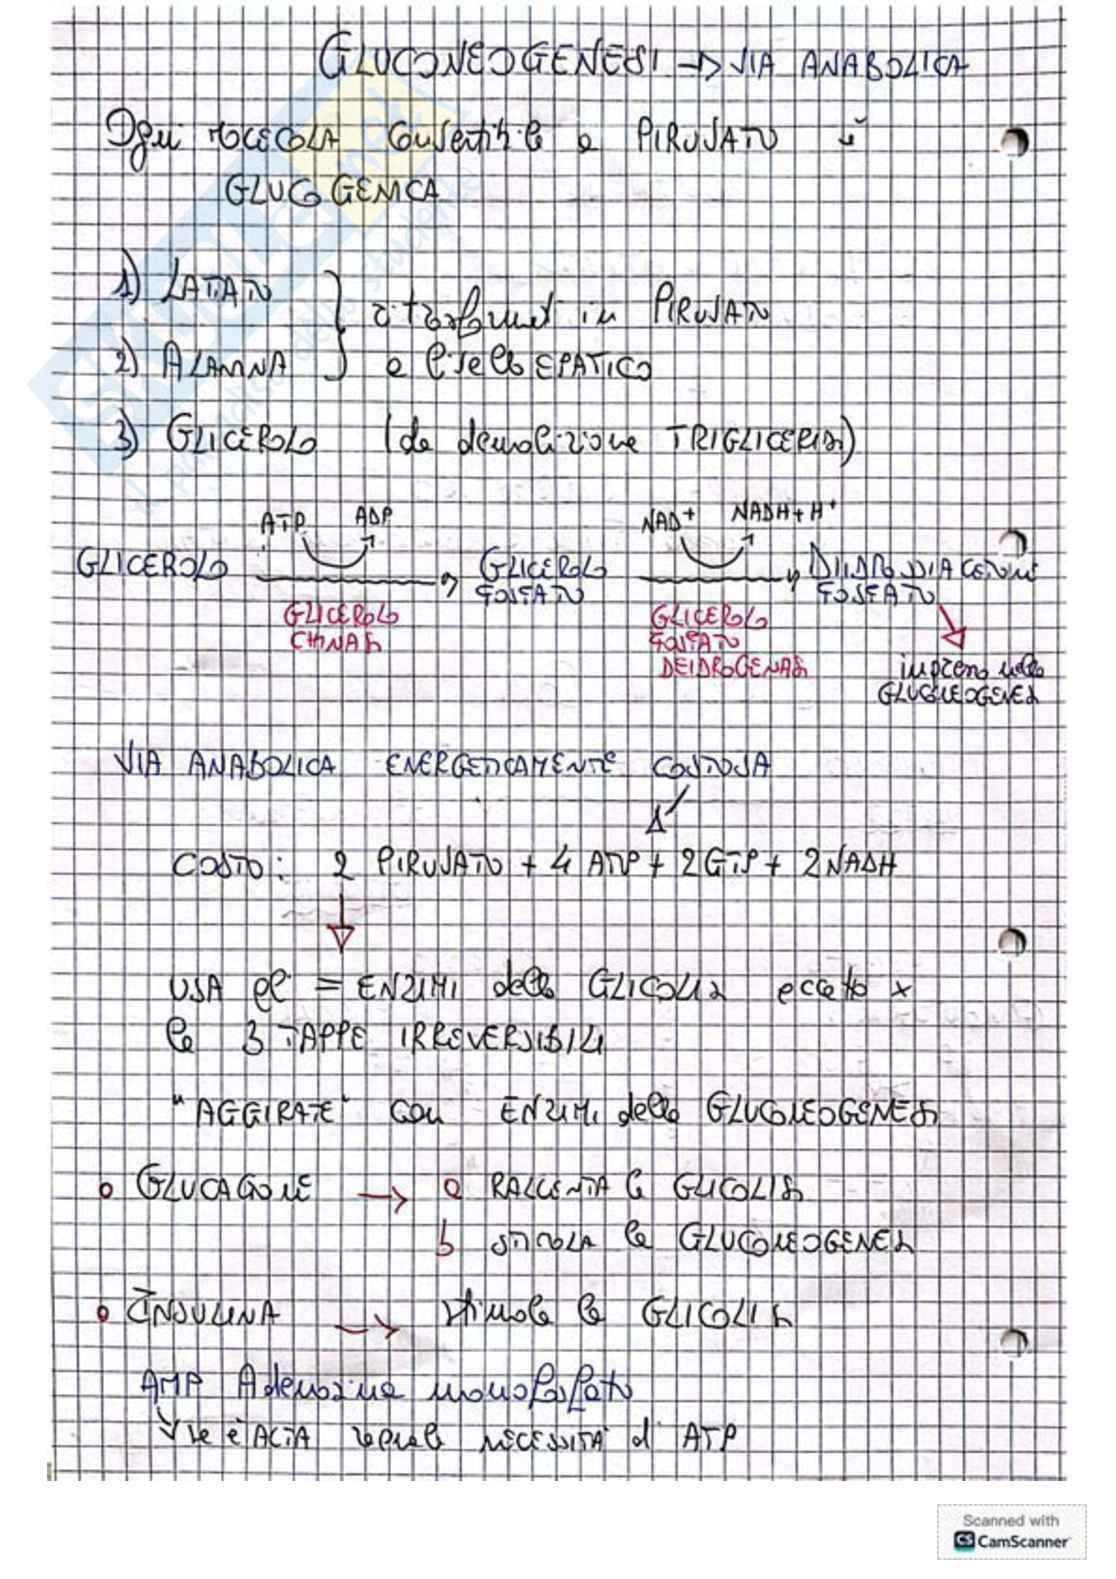 GLUCONEOGENESI → VIA ANABOLICA
Ogni MOLECOLA convertibile a PIRUVATO è
GLUCOGENICA
1) LATTATO
ritrasformati in PIRUVATO
2) ALANINA
a livello EPATICO
3) GLICEROLO (da demolizione TRIGLICERIDI)
ATP ADP NAD+ NADH+H+
GLICEROLO → GLICEROLO → DIIDROSSIACETONE
FOSFATO FOSFATO
GLICEROLO GLICEROLO
CHINASI FOSFATO
DEIDROGENASI
nella
GLUCONEOGENESI
VIA ANABOLICA ENERGETICAMENTE COSTOSA
COSTO: 2 PIRUVATO + 4 ATP + 2 GTP + 2 NADH
USA gli = ENZIMI della GLICOLISI eccetto x
le 3 TAPPE IRREVERSIBILI
"AGGIRATE" con ENZIMI della GLUCONEOGENESI
o GLUCAGONE → a RALLENTA la GLICOLISI
b STIMOLA la GLUCONEOGENESI
o INSULINA → stimola la GLICOLISI
AMP Adenosina monofosfato
↘ se è ALTA segnala NECESSITÀ d'ATP
Scanned with
CS CamScanner